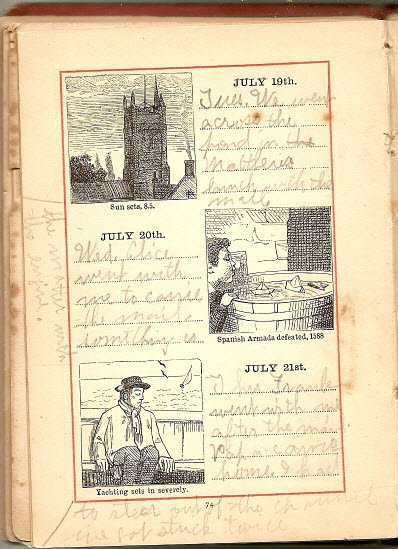 JULY 19th.
Tues. We went
across the
pond in the
Matthews
lunch with the
mill
Sun sets, 8.5.
JULY 20th.
Wed. Alice
went with
me to
the
something is
the matter with
the engine.
Spanish Armada defeated, 1588
JULY 21st.
Thur. Frank
went with me
after the
Papa came
home. I had
Yachting sets in severely.
74
to steer out of the channel
we got stuck twice